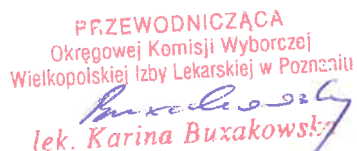 PRZEWODNICZĄCA
Okręgowej Komisji Wyborczej
Wielkopolskiej Izby Lekarskiej w Poznaniu
lek. Karina Buxakowska